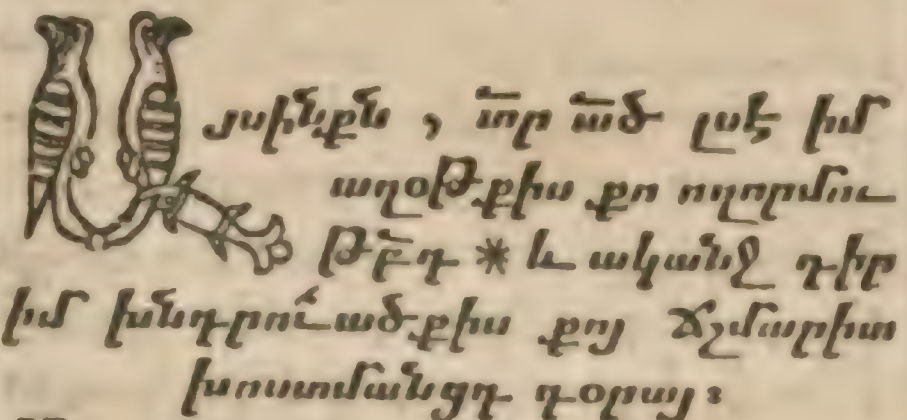 Այսինքն , տ̅ր ա̅ծ լսէ իմ
աղօթքիս քո ողորմու
թբ̅դ * և ականջ դիր
իմ խնդրուածքիս քոյ ճշմարիտ
խոստմանցդ դօրայ ։